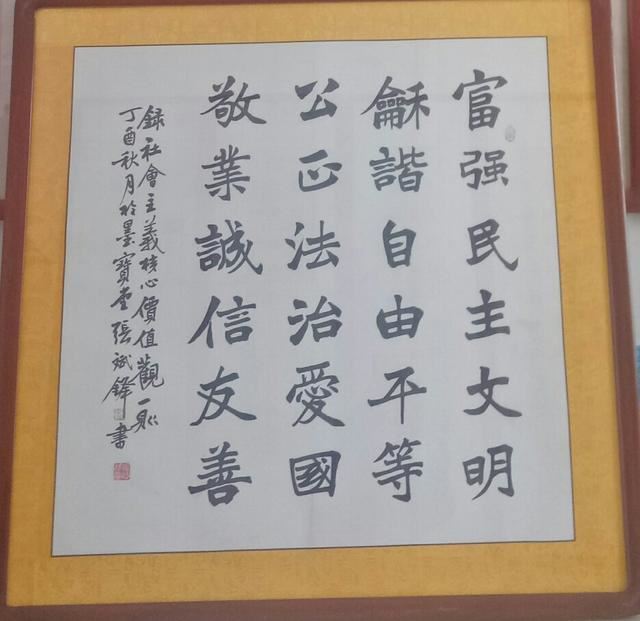 富强民主文明
龢諧自由平等
公正法治愛國
敬業誠信友善
録社會主義核心價值觀一則
丁酉秋月於墨寶堂張斌鋒書